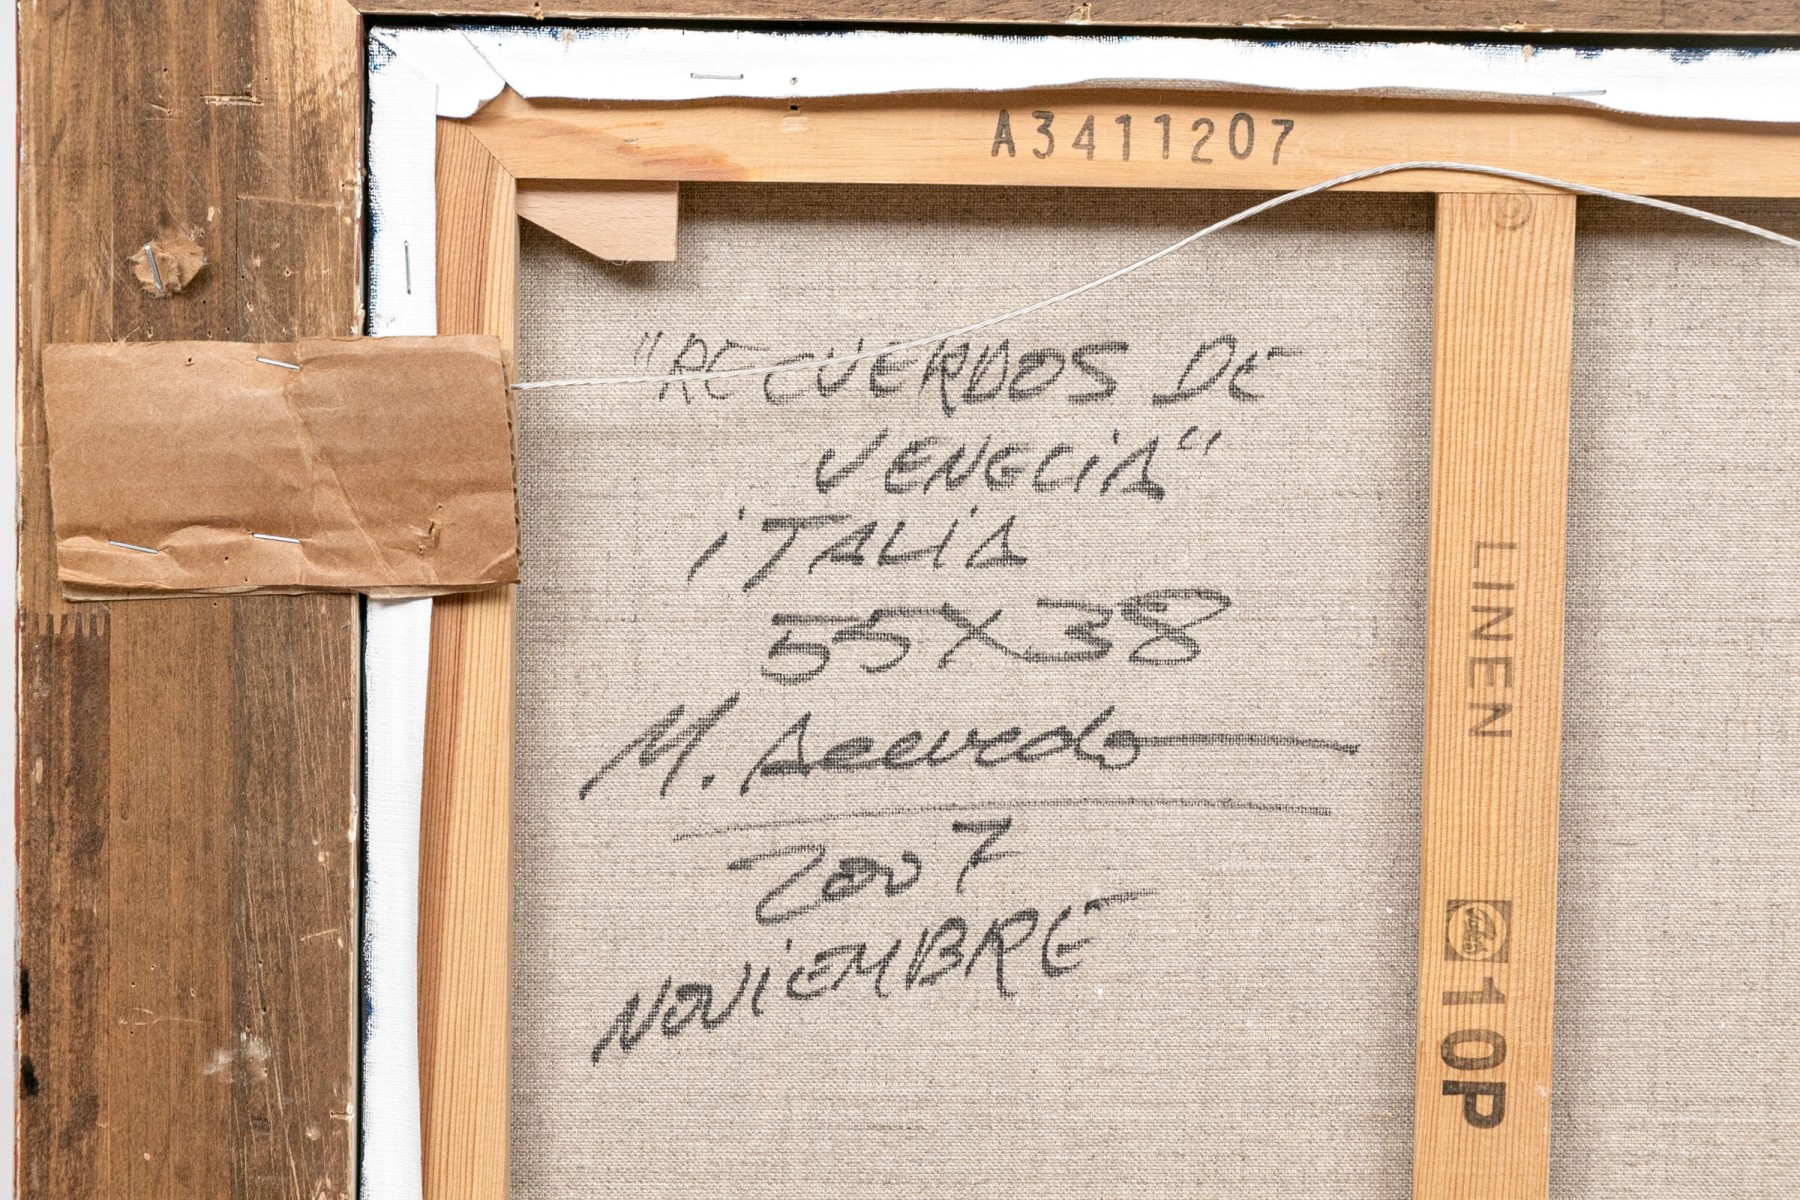 A3411207
"RECUERDOS DE
VENECIA"
iTALiA
55X38
M. Acevedo
2007
NOViEMBRE
LINEN
10P